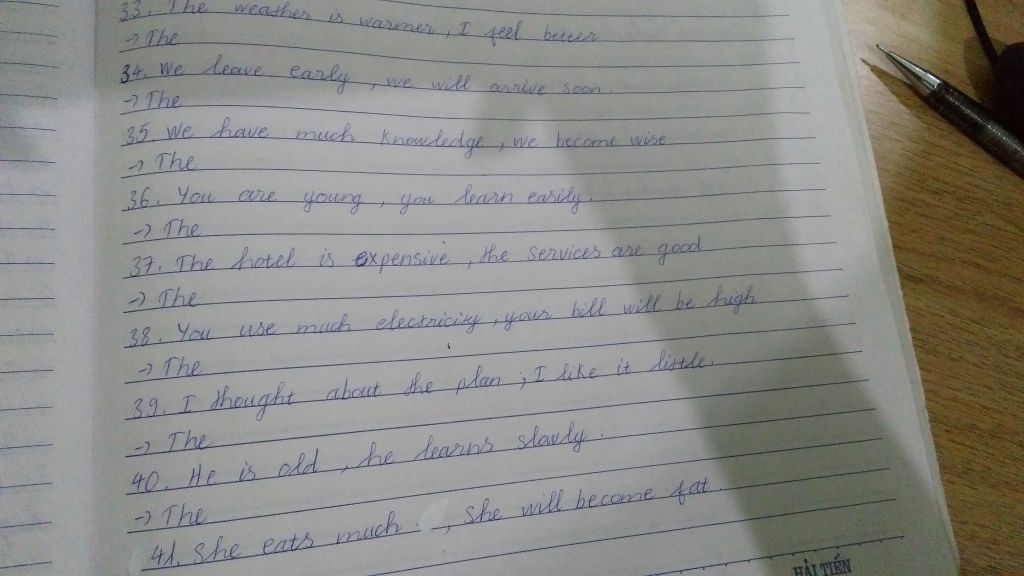 33. The weather is warmer, I feel better
→ The
34. We leave early, we will arrive soon.
→ The
35. We have much knowledge, we become wise
→ The
36. You are young, you learn easily.
→ The
37. The hotel is expensive, the services are good
→ The
38. You use much electricity, your bill will be high
→ The
39. I thought about the plan, I like it little.
→ The
40. He is old, he learns slowly.
→ The
41. She eats much, she will become fat.
HẢI TIẾN